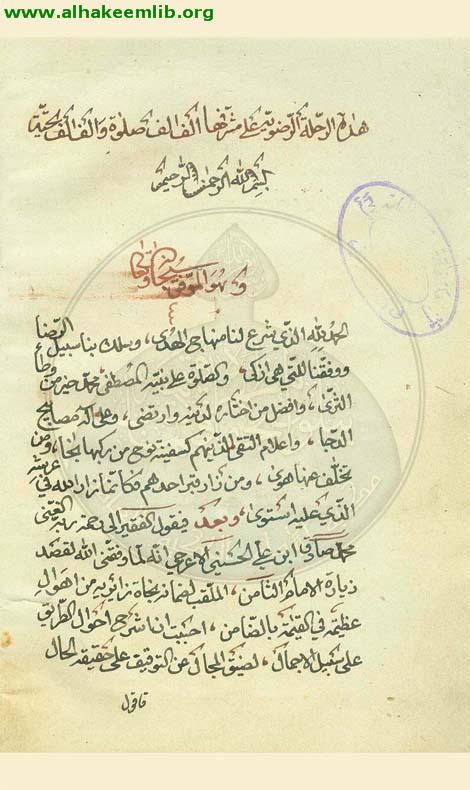 www.alhakeemlib.org
هذه الرحلة الرضوية على مشرفها الف الف صلوة والف الف تحية
بسم الله الرحمن الرحيم
وهو الموفق
الحمد لله الذي شرع لنا مناهج الهدى، وسلك بنا سبيل الرضا
ووفقنا للتي هي ازكى، والصلوة على نبيه المصطفى محمد خير من وطاء
الثرى، وافضل من اختاره لدينه وارتضى، وعلى اله مصابيح
الدجا، واعلام التقى الذينهم كسفينة نوح من ركبها نجا، ومن
تخلف عنها هوى، ومن زار قبر احدهم فكانما زار الله في عرشه
الذي عليه استوى، وبعد فيقول الفقير الى رحمة ربه الغني
محمد صادق ابن علي الحسيني الاعرجي انه لما وفقني الله لقصد
زيارة الامام الثامن، الملقب لضمانه نجاة زائريه من اهوال
عظيمة في القيمة بالضامن، احببت ان اشرح احوال الطريق
على سبيل الاجمال، لضيق المجال عن التوقيف على حقيقة الحال
فاقول